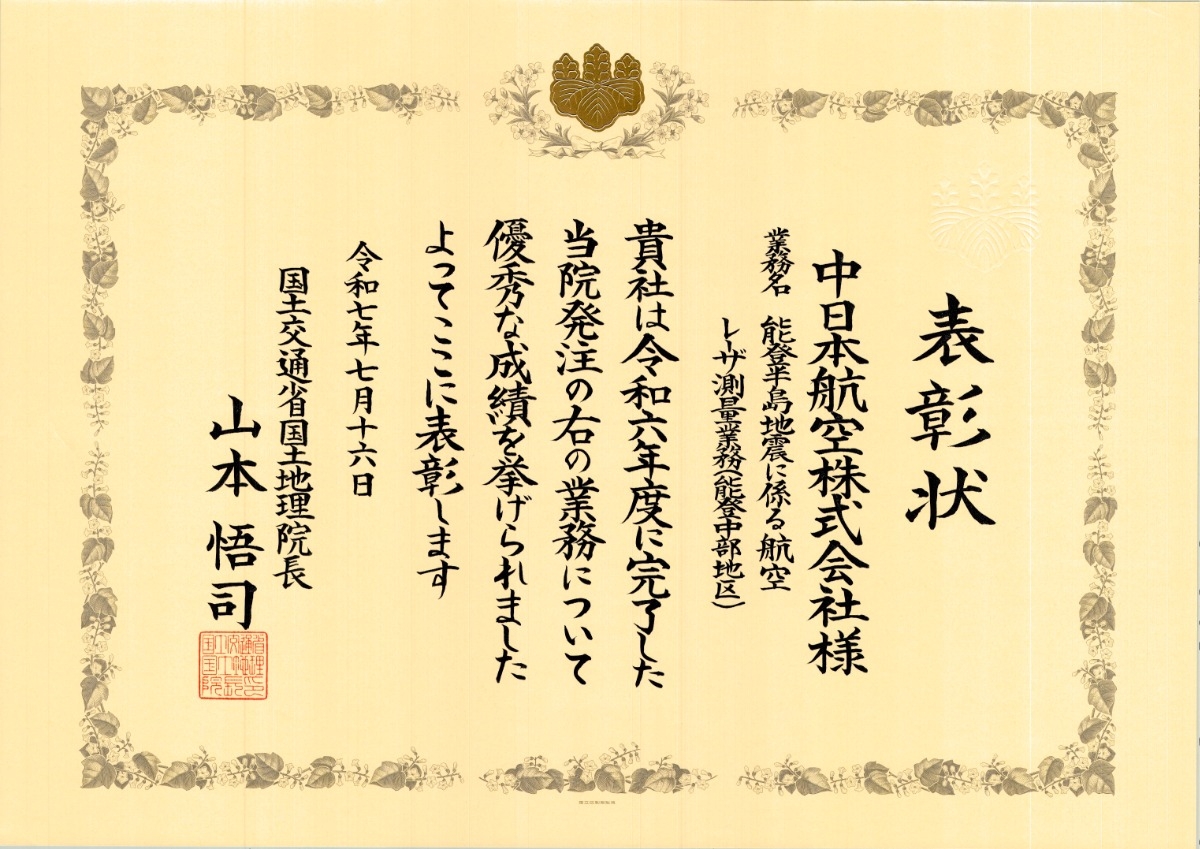 表彰状
中日本航空株式会社様
業務名 能登半島地震に係る航空
レーザ測量業務(能登中部地区)
貴社は令和六年度に完了した
当院発注の右の業務について
優秀な成績を挙げられました
よってここに表彰します
令和七年七月十六日
国土交通省国土地理院長
山本 悟司